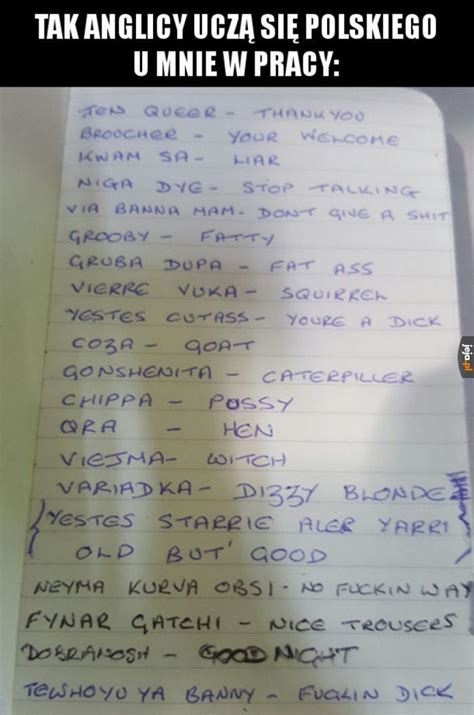 TAK ANGLICY UCZĄ SIĘ POLSKIEGO
U MNIE W PRACY:
TEN QUEER - THANKYOU
BROOCHER - YOUR WELCOME
KWAM SA - LIAR
NIGA DYE - STOP TALKING
VIA BANNA MAM - DONT GIVE A SHIT
GROOBY - FATTY
GRUBA DUPA - FAT ASS
VIERRE VUKA - SQUIRREL
YESTES CUTASS - YOURE A DICK
COZA - GOAT
GONSHENITA - CATERPILLER
CHIPPA - PUSSY
QRA - HEN
VIEJMA - WITCH
VARIADKA - DIZZY BLONDE
YESTES STARRIE ALER YARRI
OLD BUT GOOD
NEYMA KURVA OBSI - NO FUCKIN WAY
FYNAR GATCHI - NICE TROUSERS
DOBRANOSH - GOOD NIGHT
TEWSHOYU YA BANNY - FUCKIN DICK
jeja.pl